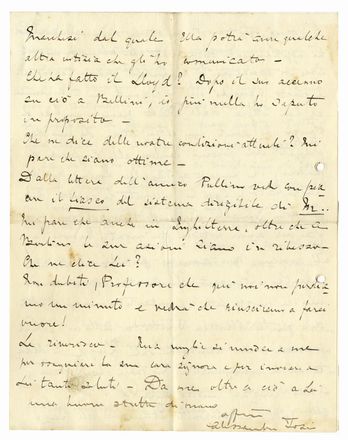 Marchesi dal quale Ella potrà aver qualche
altra notizia che gli ho comunicato —
Che ha fatto il Lloyd? Dopo il suo accenno
su ciò a Bellini, io più nulla ho saputo
in proposito —
Che ne dice delle nostre condizioni attuali? Mi
pare che siano ottime —
Dalla lettera dell'amico Pullino vedo con
con il fiasco del sistema dirigibile di M...
Mi pare che anche in Inghilterra, oltre che a
Berlino le sue azioni siano in ribasso —
Che ne dice Lei?
Non dubiti, Professore che qui noi non perdia-
mo un minuto e vedrà che riusciremo a farci
onore!
La riverisco — Mia moglie si unisce a me
per ossequiare la sua cara signora e per inviare a
Lei tanti saluti — Da me oltre a ciò a Lei
una buona stretta di mano
aff
Alessandro